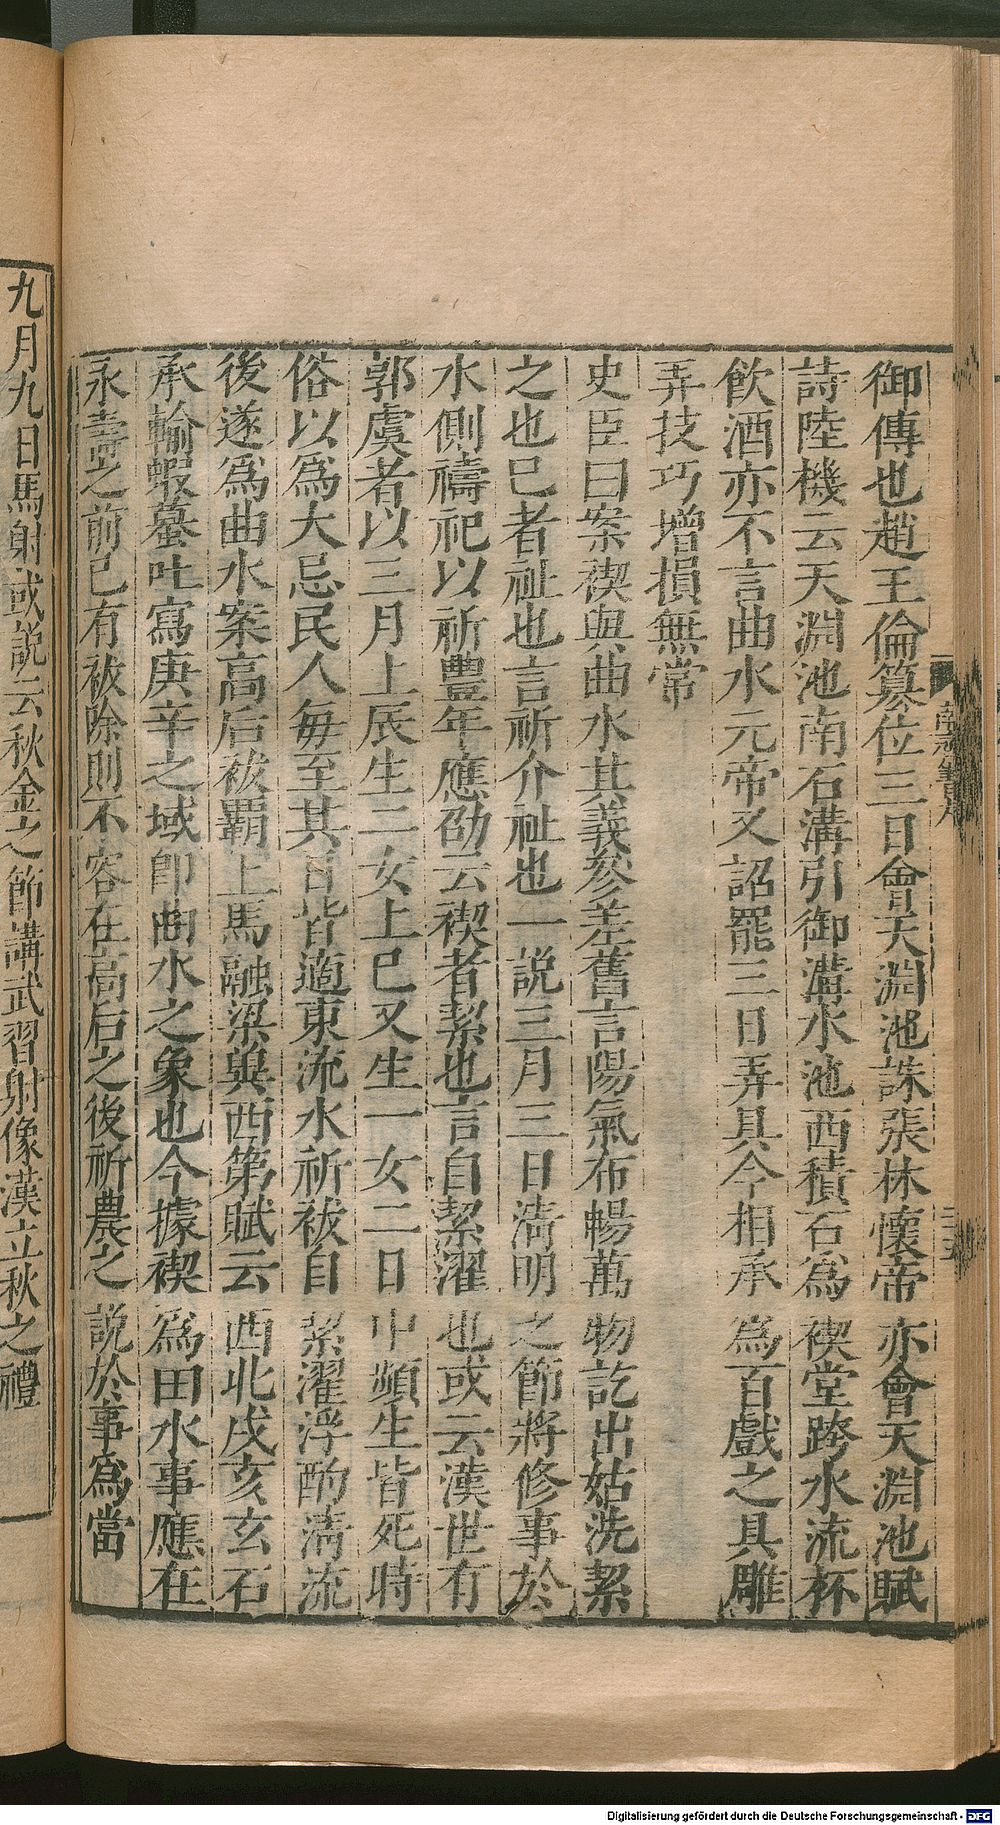 御傳也趙王倫篡位三日會天淵池誅張林懷帝亦會天淵池賦
詩陸機云天淵池南石溝引御溝水池西積石爲禊堂跨水流杯
飲酒亦不言曲水元帝又詔罷三日弄具今相承爲百戲之具雕
弄技巧增損無常
史臣曰案禊與曲水其義參差舊言陽氣布暢萬物訖出姑洗絜
之也巳者祉也言祈介祉也一說三月三日淸明之節將修事於
水側禱祀以祈豐年應劭云禊者絜也言自絜濯也或云漢世有
郭虞者以三月上辰生二女上巳又生一女二日中頻生皆死時
俗以爲大忌民人每至其日皆適東流水祈祓自絜濯浮酌淸流
後遂爲曲水案高后祓霸上馬融梁冀西第賦云西北戌亥玄石
承輸蝦蟇吐寫庚辛之域卽曲水之象也今據禊爲田水事應在
永壽之前已有祓除則不容在高后之後祈農之說於事爲當
九月九日馬射或說云秋金之節講武習射像漢立秋之禮
Digitalisierung gefördert durch die Deutsche Forschungsgemeinschaft - DFG